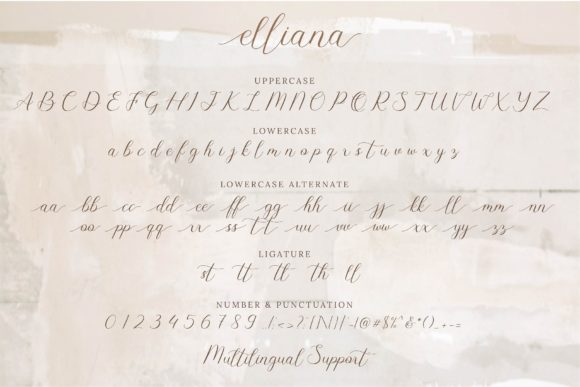 elliana
UPPERCASE
A B C D E F G H I J K L M N O P Q R S T U V W X Y Z
LOWERCASE
a b c d e f g h i j k l m n o p q r s t u v w x y z
LOWERCASE ALTERNATE
aa bb cc dd ee ff gg hh ii jj kk ll mm nn
oo pp qq rr ss tt uu vv ww xx yy zz
LIGATURE
st tt tl th ll
NUMBER & PUNCTUATION
0 1 2 3 4 5 6 7 8 9
Multilingual Support